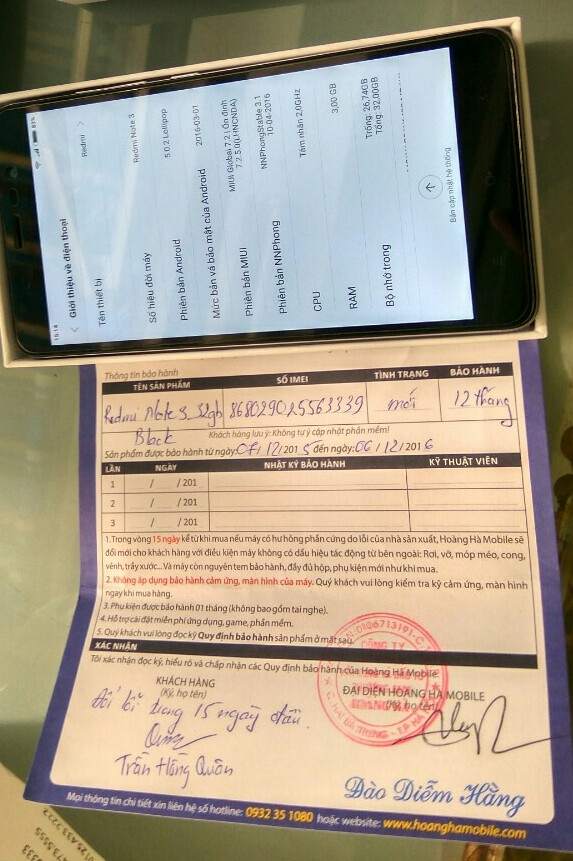 16:14
81%
Giới thiệu về điện thoại
Tên thiết bị Redmi
Số hiệu đời máy Redmi Note 3
Phiên bản Android 5.0.2 Lollipop
Mức bản vá bảo mật của Android 2016-03-01
Phiên bản MIUI MIUI Global 7.2 | Ổn định
7.2.5.0(LHNCNDA)
Phiên bản NNPhong NNPhongStable 3.1
10-04-2016
CPU Tám nhân 2,0GHz
RAM 3,00 GB
Bộ nhớ trong Trống: 26,74GB
Tổng: 32,00GB
Bản cập nhật hệ thống
Thông tin bảo hành
TÊN SẢN PHẨM SỐ IMEI TÌNH TRẠNG BẢO HÀNH
Redmi Note 3 32gb 868029025563339 mới 12 tháng
Black Khách hàng lưu ý: Không tự ý cập nhật phần mềm!
Sản phẩm được bảo hành từ ngày: 07/12/2015 đến ngày: 06/12/2016
LẦN NGÀY NHẬT KÝ BẢO HÀNH KỸ THUẬT VIÊN
1 / / 201
2 / / 201
3 / / 201
1. Trong vòng 15 ngày kể từ khi mua nếu máy có hư hỏng phần cứng do lỗi của nhà sản xuất, Hoàng Hà Mobile sẽ
đổi mới cho khách hàng với điều kiện máy không có dấu hiệu tác động từ bên ngoài: Rơi, vỡ, móp méo, cong,
vênh, trầy xước... Và máy còn nguyên tem bảo hành, đầy đủ hộp, phụ kiện mới như khi mua.
2. Không áp dụng bảo hành cảm ứng, màn hình của máy. Quý khách vui lòng kiểm tra kỹ cảm ứng, màn hình
ngay khi mua hàng.
3. Phụ kiện được bảo hành 01 tháng (không bao gồm tai nghe).
4. Hỗ trợ cài đặt miễn phí ứng dụng, game, phần mềm.
5. Quý khách vui lòng đọc kỹ Quy định bảo hành sản phẩm ở mặt sau.
XÁC NHẬN
Tôi xác nhận đọc kỹ, hiểu rõ và chấp nhận các Quy định bảo hành của Hoàng Hà Mobile
KHÁCH HÀNG ĐẠI DIỆN HOÀNG HÀ MOBILE
(Ký, họ tên) (Ký, họ tên)
0106713191-C
CÔNG TY
HOÀNG
Q. HAI BÀ TRƯNG - T.P HÀ
Đổi lỗi trong 15 ngày đầu.
Trần Hồng Quân
Đào Diễm Hằng
Mọi thông tin chi tiết xin liên hệ số hotline: 0932 35 1080 hoặc website: www.hoanghamobile.com